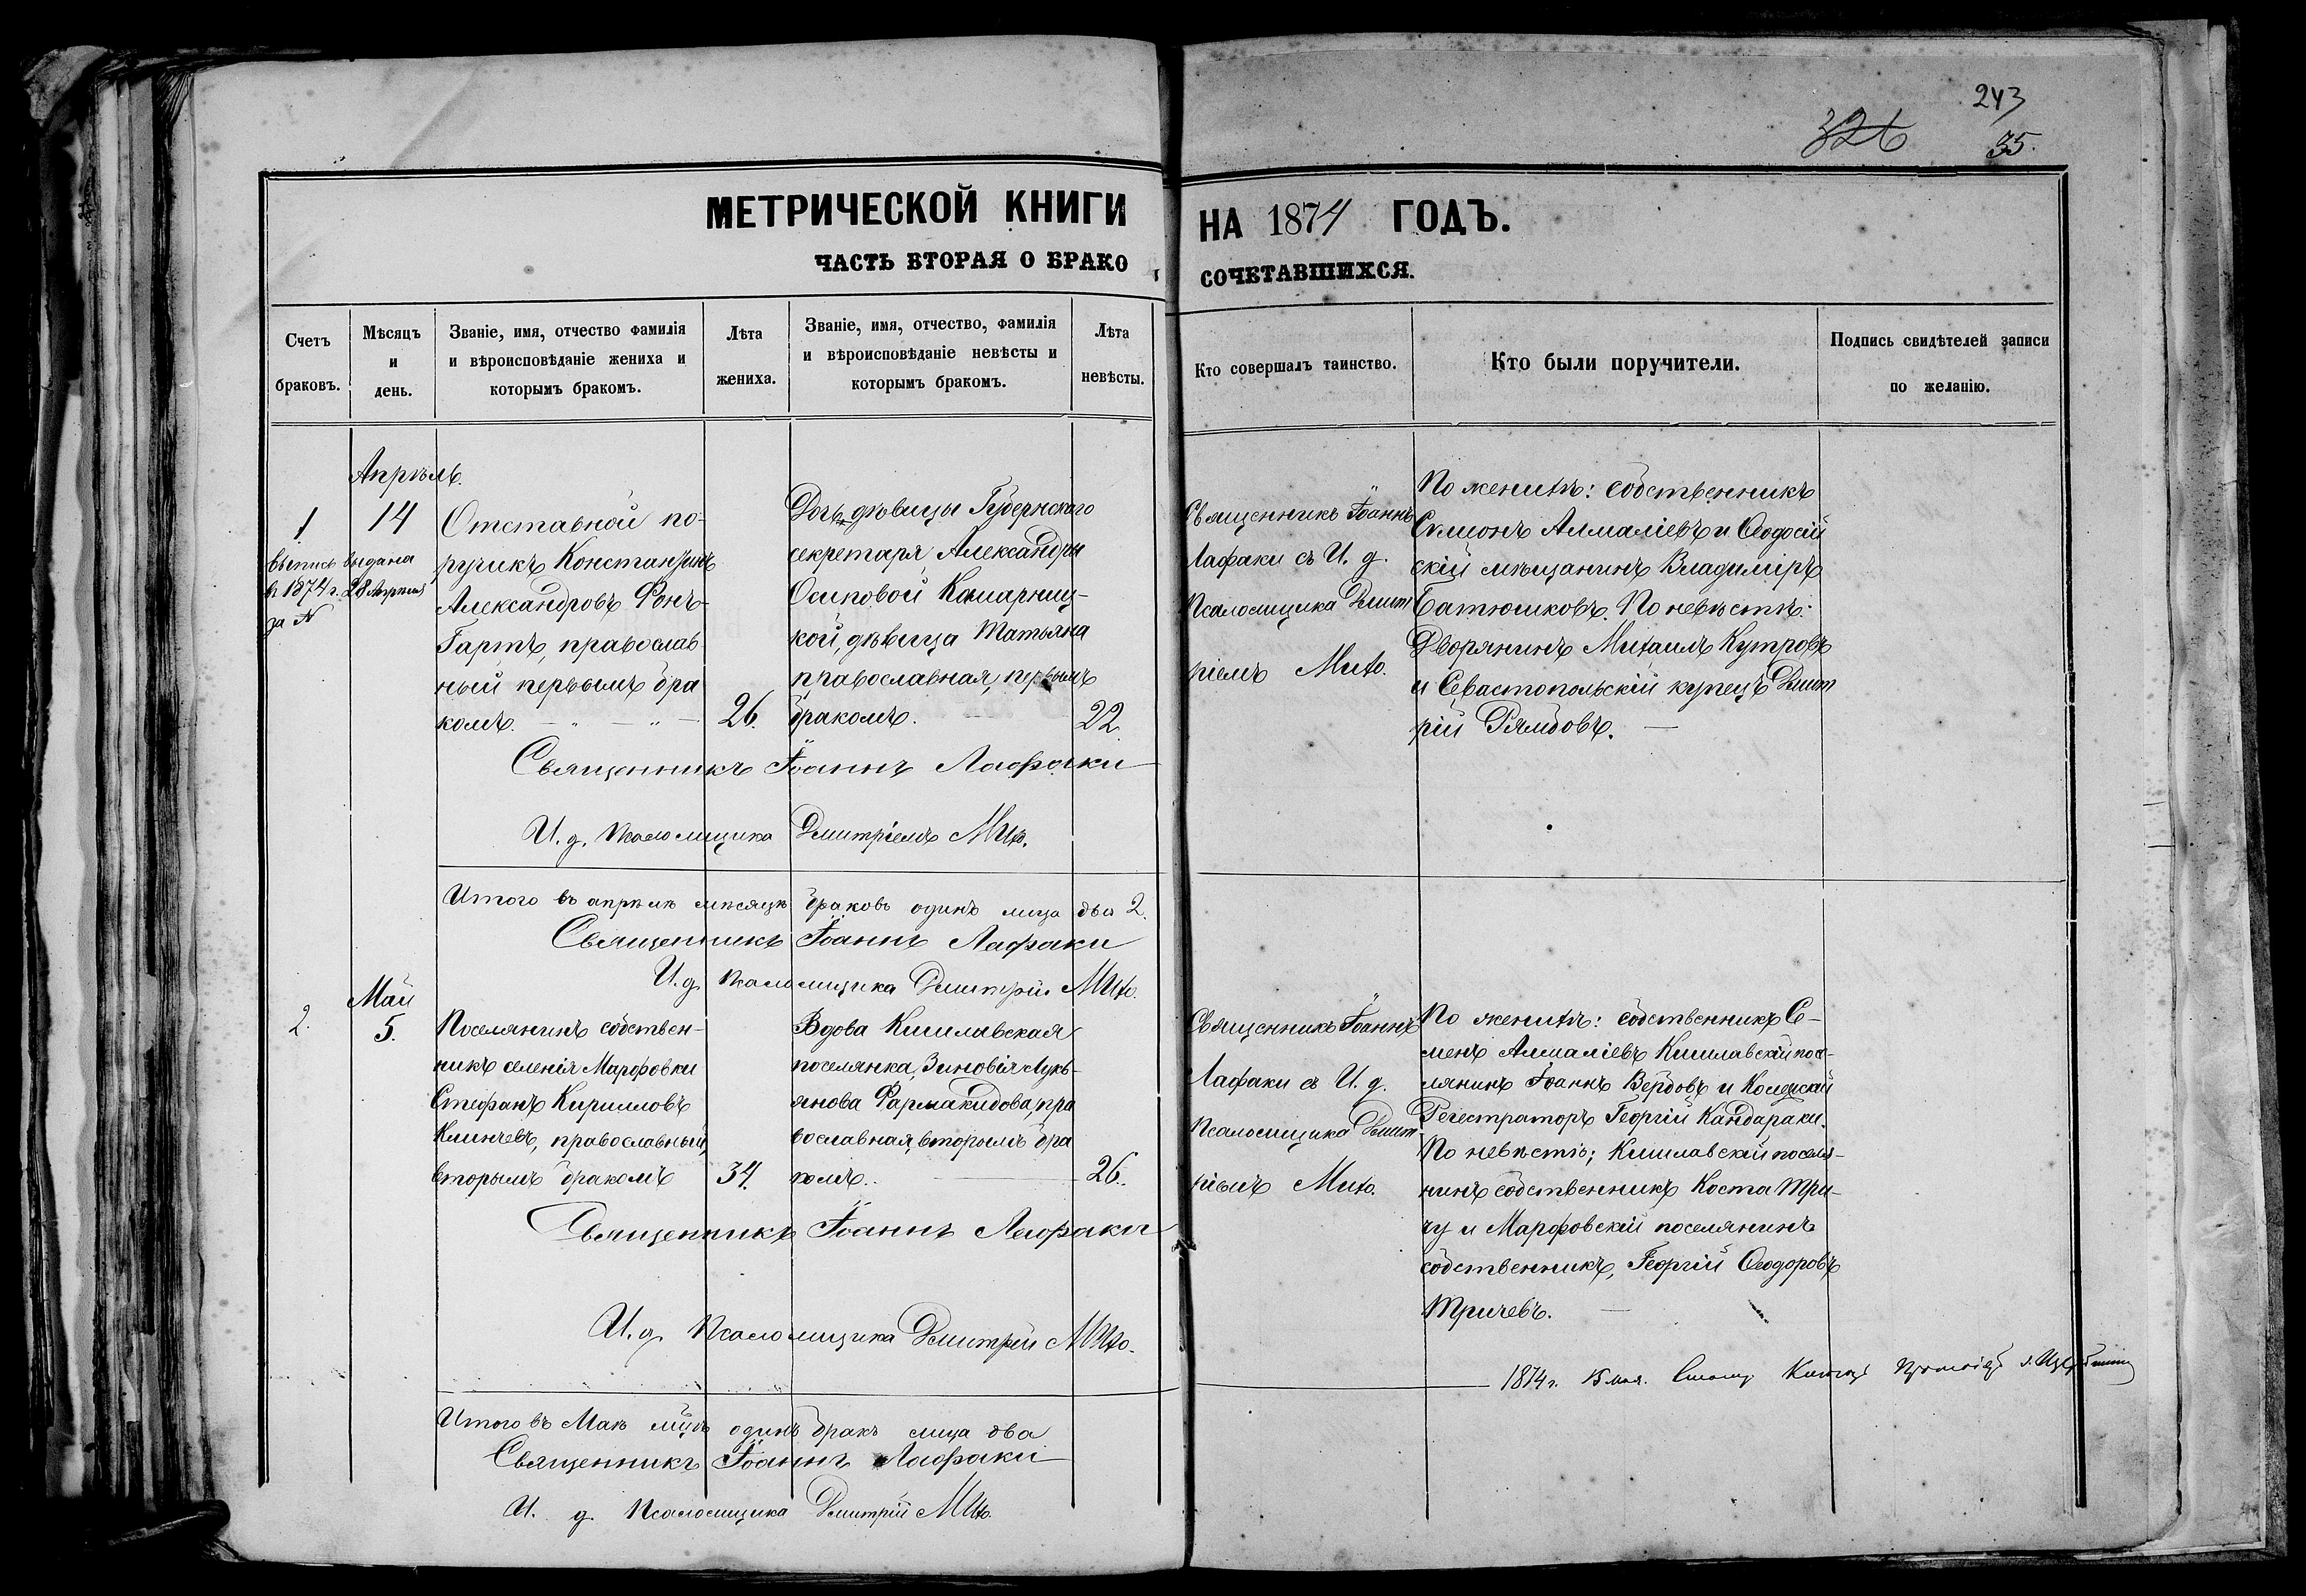 243
326
35.
МЕТРИЧЕСКОЙ КНИГИ НА 1874 ГОДЪ.
ЧАСТЬ ВТОРАЯ О БРАКО СОЧЕТАВШИХСЯ.
Счетъ
браковъ.
Мѣсяцъ
и
день.
Званіе, имя, отчество фамилія
и вѣроисповѣданіе жениха и
которымъ бракомъ.
Лѣта
жениха.
Званіе, имя, отчество, фамилія
и вѣроисповѣданіе невѣсты и
которымъ бракомъ.
Лѣта
невѣсты.
Кто совершалъ таинство.
Кто были поручители.
Подпись свидѣтелей записи
по желанію.
1
выпись выдана
въ 1874 г. 28 Апрѣля
за №
Апрѣль.
14
Отставной по-
ручикъ Константинъ
Александровъ Фонъ-
Гартъ, православ-
ный первымъ бра
комъ.
26.
Дочь дѣвицы Губернскаго
секретаря, Александры
Осиповой Комарниц-
кой, дѣвица Татьяна
православная, первымъ
бракомъ.
22.
Священникъ Іоаннъ
Лафаки съ И. д.
Псаломщика Дмит
ріемъ Михо.
По женихѣ: собственникъ
Симонъ Алмаліевъ и Ѳеодосій
скій мѣщанинъ Владиміръ
Батюшковъ. По невѣстѣ:
Дворянинъ Михаилъ Кутровъ
и Севастопольскій купецъ Дмит
рій Рямбовъ.
Священникъ Іоаннъ Лафаки
И. д. Псаломщика Дмитріемъ Михо.
Итого въ апрѣлѣ мѣсяцѣ браковъ одинъ лица два 2.
Священникъ Іоаннъ Лафаки
И. д. Псаломщика Дмитрій Михо.
2.
Май
5.
Поселянинъ собствен-
никъ селенія Марфовки
Стефанъ Кирилловъ
Клинчевъ, православный,
вторымъ бракомъ
34.
Вдова Кишлавская
поселянка, Зиновія Лукь-
янова Фармакидова, пра
вославная, вторымъ бра
комъ.
26.
Священникъ Іоаннъ
Лафаки съ И. д.
Псаломщика Дмит-
ріемъ Михо.
По женихѣ: собственникъ Се-
менъ Алмаліевъ Кишлавскій посе-
лянинъ Іоаннъ Вербовъ и Колежскій
Регестраторъ Георгій Кандараки.
По невѣстѣ; Кишлавскій поселя-
нинъ собственникъ Коста Три-
чу и Марфовскій поселянинъ
собственникъ, Георгій Ѳеодоровъ
Тричевъ.
Священникъ Іоаннъ Лафаки
И. д. Псаломщика Дмитрій Михо.
1874 г. 15 мая.
Итого въ Маѣ мцѣ одинъ бракъ лица два
Священникъ Іоаннъ Лафаки
И. д. Псаломщика Дмитрій Михо.